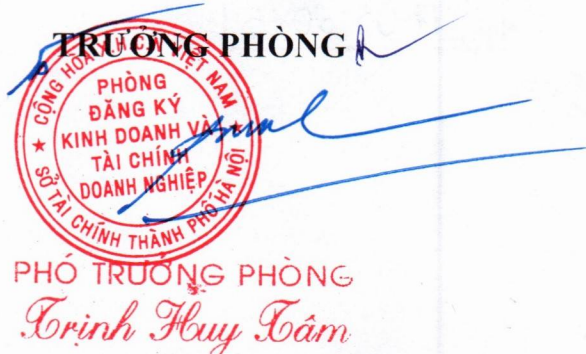 TRƯỞNG PHÒNG
CỘNG HOÀ XHCN VIỆT NAM
PHÒNG
ĐĂNG KÝ
KINH DOANH VÀ
TÀI CHÍNH
DOANH NGHIỆP
★ SỞ TÀI CHÍNH THÀNH PHỐ HÀ NỘI ★
PHÓ TRƯỞNG PHÒNG
Trịnh Huy Tâm